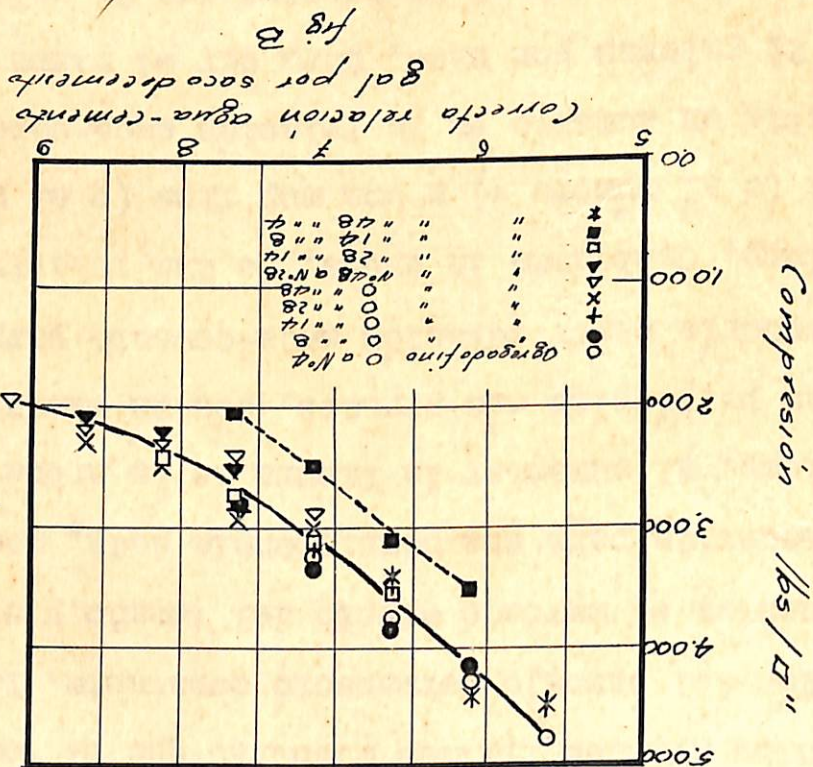 Compresión lbs/□"
5.000
4.000
3,000
2.000
1.000
0.0
Agregado fino 0 a Nº4
" " 0 " " 8
" " 0 " " 14
" " 0 " " 28
" " 0 " " 48
" " Nº48 a Nº28
" " 28 " " 14
" " 14 " " 8
" " 48 " " 4
5 6 7 8 9
Correcta relación agua-cemento
gal por saco de cemento
fig B